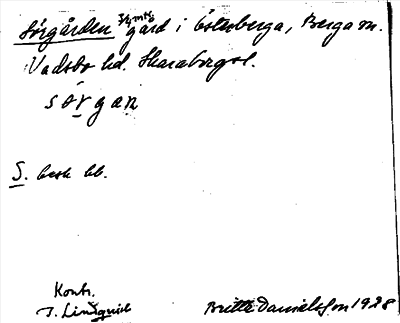 Sörgården gård i Österberga, Berga sn.
Vadsbo hd. Skaraborgs l.
sörgan
S. besk bb.
Kontr.
J. Lindquist
Britta Danielsson 1928